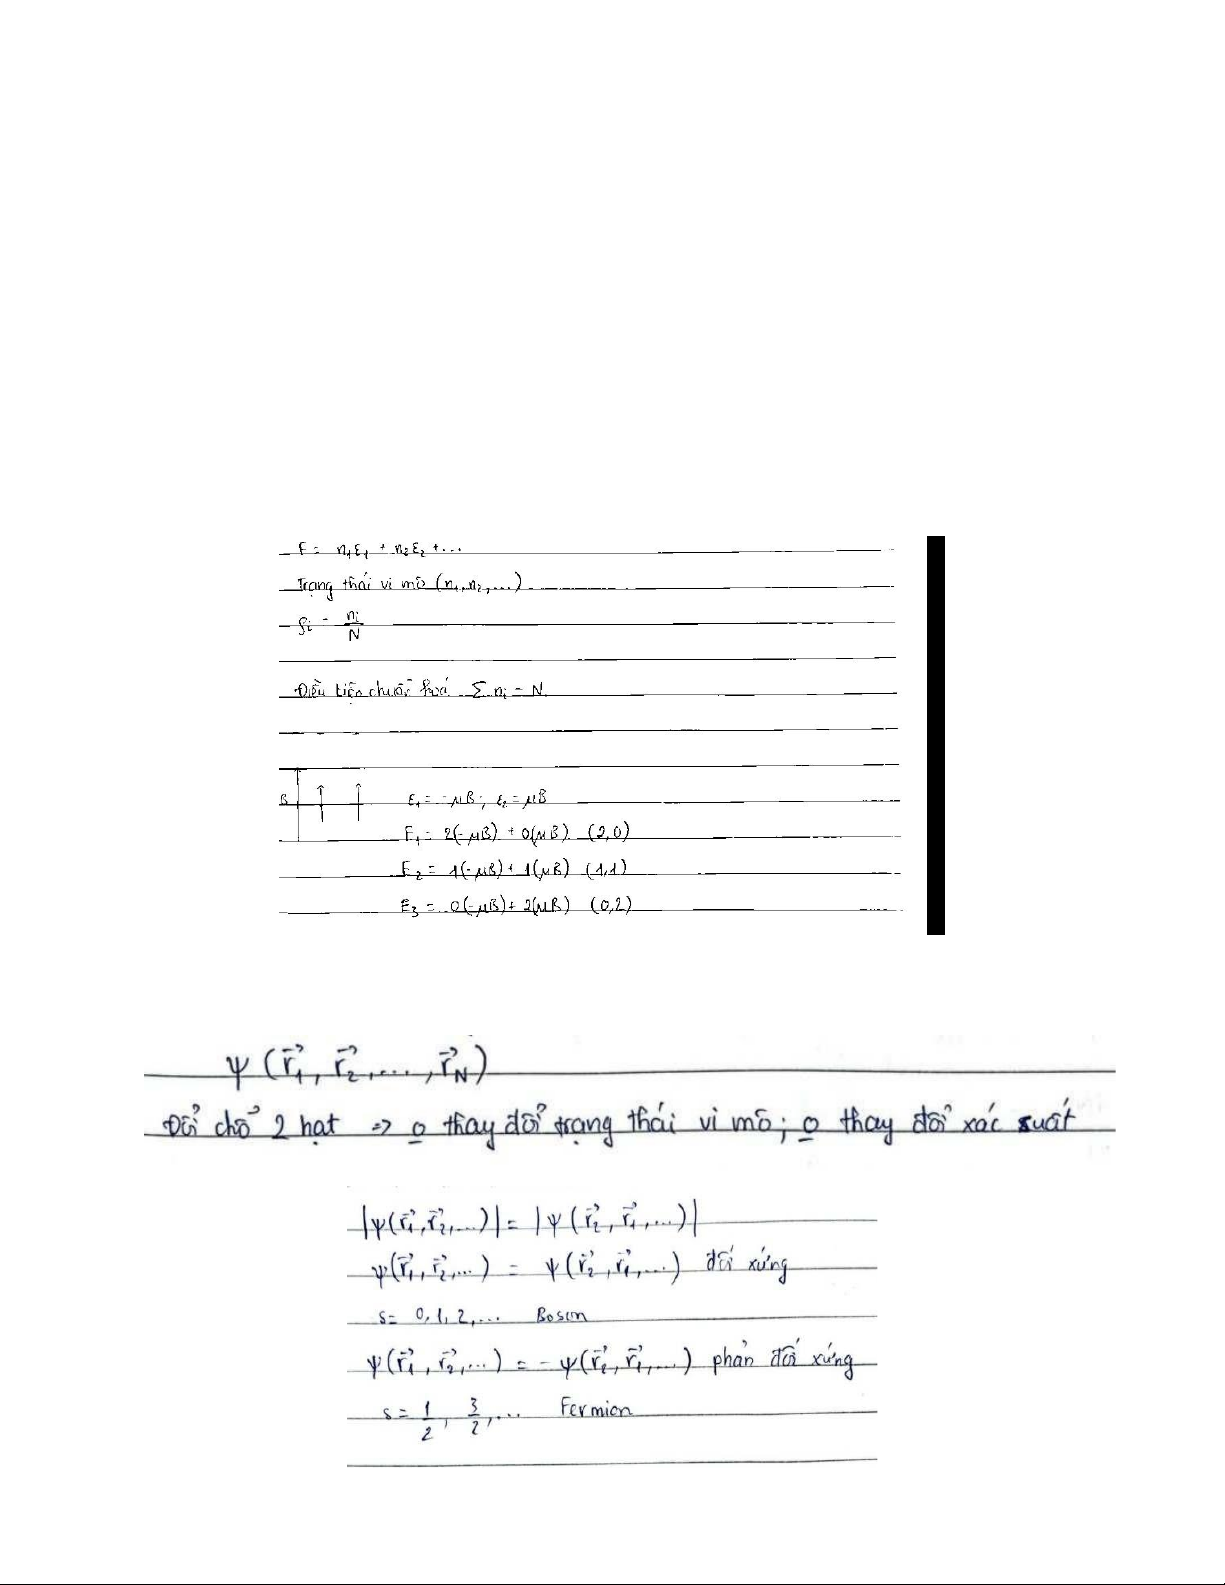 E = n₁ε₁ + n₂ε₂ + ...
Trạng thái vi mô (n₁, n₂, ...)
ρᵢ = nᵢ/N
Điều kiện chuẩn hoá Σ nᵢ = N
B ε₁ = -μB ; ε₂ = μB
E₁ = 2(-μB) + 0(μB) (2,0)
E₂ = 1(-μB) + 1(μB) (1,1)
E₃ = 0(-μB) + 2(μB) (0,2)
ψ(r⃗₁, r⃗₂, ..., r⃗N)
Đổi chổ 2 hạt => o̲ thay đổi trạng thái vi mô; o̲ thay đổi xác suất
|ψ(r⃗₁, r⃗₂, ...)| = |ψ(r⃗₂, r⃗₁, ...)|
ψ(r⃗₁, r⃗₂, ...) = ψ(r⃗₂, r⃗₁, ...) đối xứng
s = 0, 1, 2, ... Boson
ψ(r⃗₁, r⃗₂, ...) = -ψ(r⃗₂, r⃗₁, ...) phản đối xứng
s = 1/2, 3/2, ... Fermion